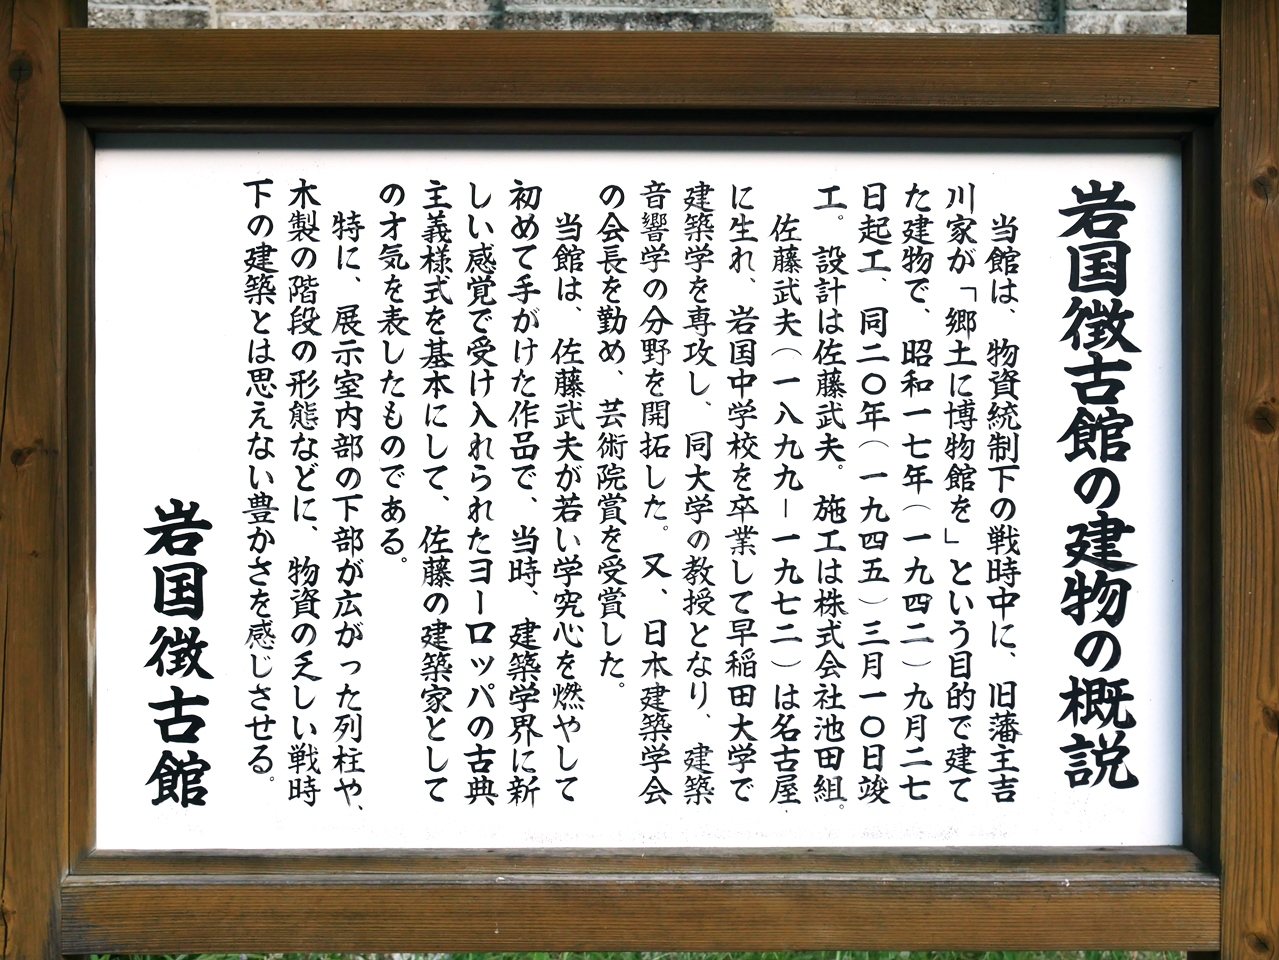 岩国徴古館の建物の概説
当館は、物資統制下の戦時中に、旧藩主吉
川家が「郷土に博物館を」という目的で建て
た建物で、昭和一七年(一九四二)九月二七
日起工、同二〇年(一九四五)三月一〇日竣
工。設計は佐藤武夫。施工は株式会社池田組。
佐藤武夫(一八九九-一九七二)は名古屋
に生れ、岩国中学校を卒業して早稲田大学で
建築学を専攻し、同大学の教授となり、建築
音響学の分野を開拓した。又、日本建築学会
の会長を勤め、芸術院賞を受賞した。
当館は、佐藤武夫が若い学究心を燃やして
初めて手がけた作品で、当時、建築学界に新
しい感覚で受け入れられたヨーロッパの古典
主義様式を基本にして、佐藤の建築家として
の才気を表したものである。
特に、展示室内部の下部が広がった列柱や、
木製の階段の形態などに、物資の乏しい戦時
下の建築とは思えない豊かさを感じさせる。
岩国徴古館